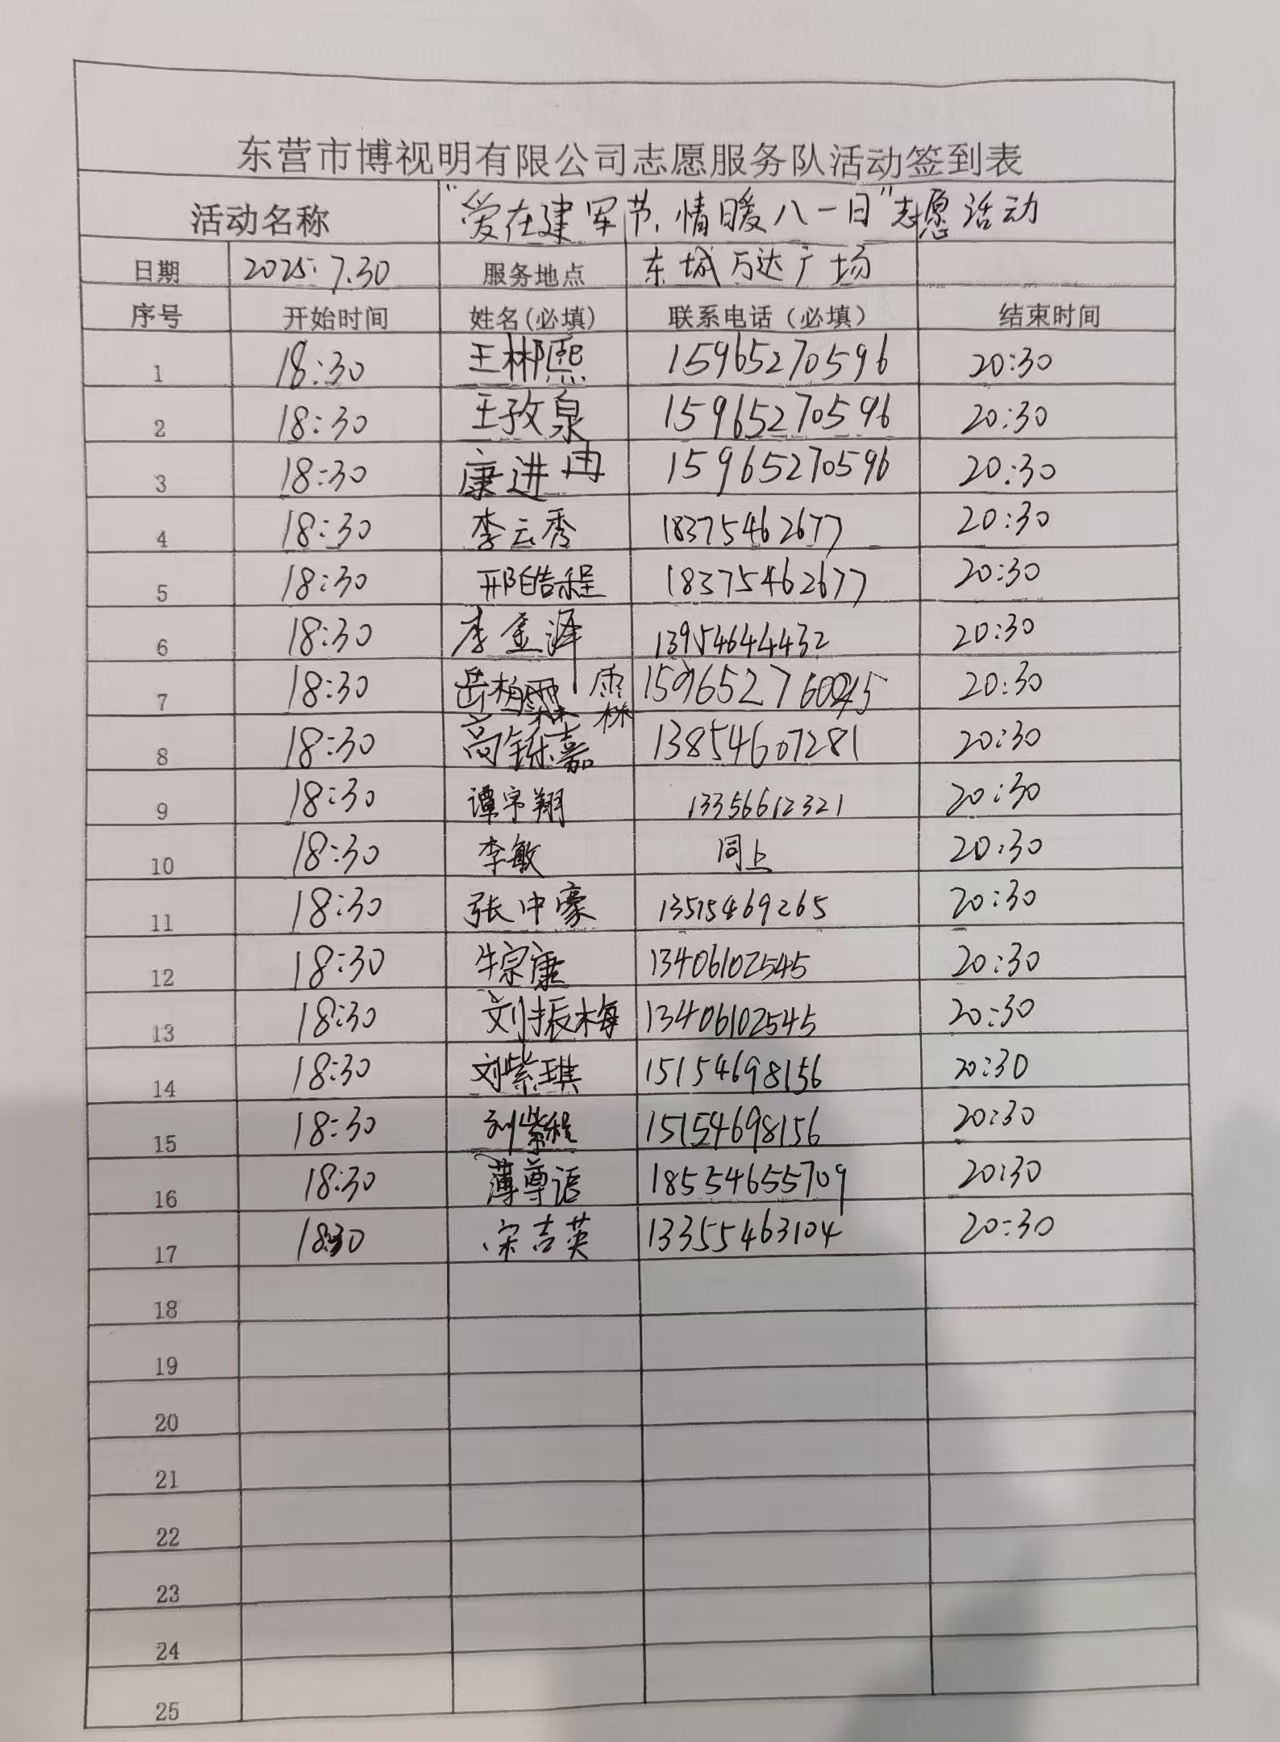 东营市博视明有限公司志愿服务队活动签到表
活动名称 "爱在建军节,情暖八一日"志愿活动
日期 2025.7.30 服务地点 东城万达广场
序号 开始时间 姓名(必填) 联系电话（必填） 结束时间
1 18:30 王彬熙 15965270596 20:30
2 18:30 王孜泉 15965270596 20:30
3 18:30 康进冉 15965270596 20:30
4 18:30 李云秀 18375462677 20:30
5 18:30 邢皓程 18375462677 20:30
6 18:30 李金泽 13954644432 20:30
7 18:30 岳柏霖 20:30
8 18:30 高铄嘉 13854607281 20:30
9 18:30 谭宇翔 13356612321 20:30
10 18:30 李敏 同上 20:30
11 18:30 张中豪 13515469265 20:30
12 18:30 牛宗康 13406102545 20:30
13 18:30 刘振梅 13406102545 20:30
14 18:30 刘紫琪 15154698156 20:30
15 18:30 刘紫程 15154698156 20:30
16 18:30 薄尊语 18554655709 20:30
17 1830 宋吉英 13355463104 20:30
18
19
20
21
22
23
24
25